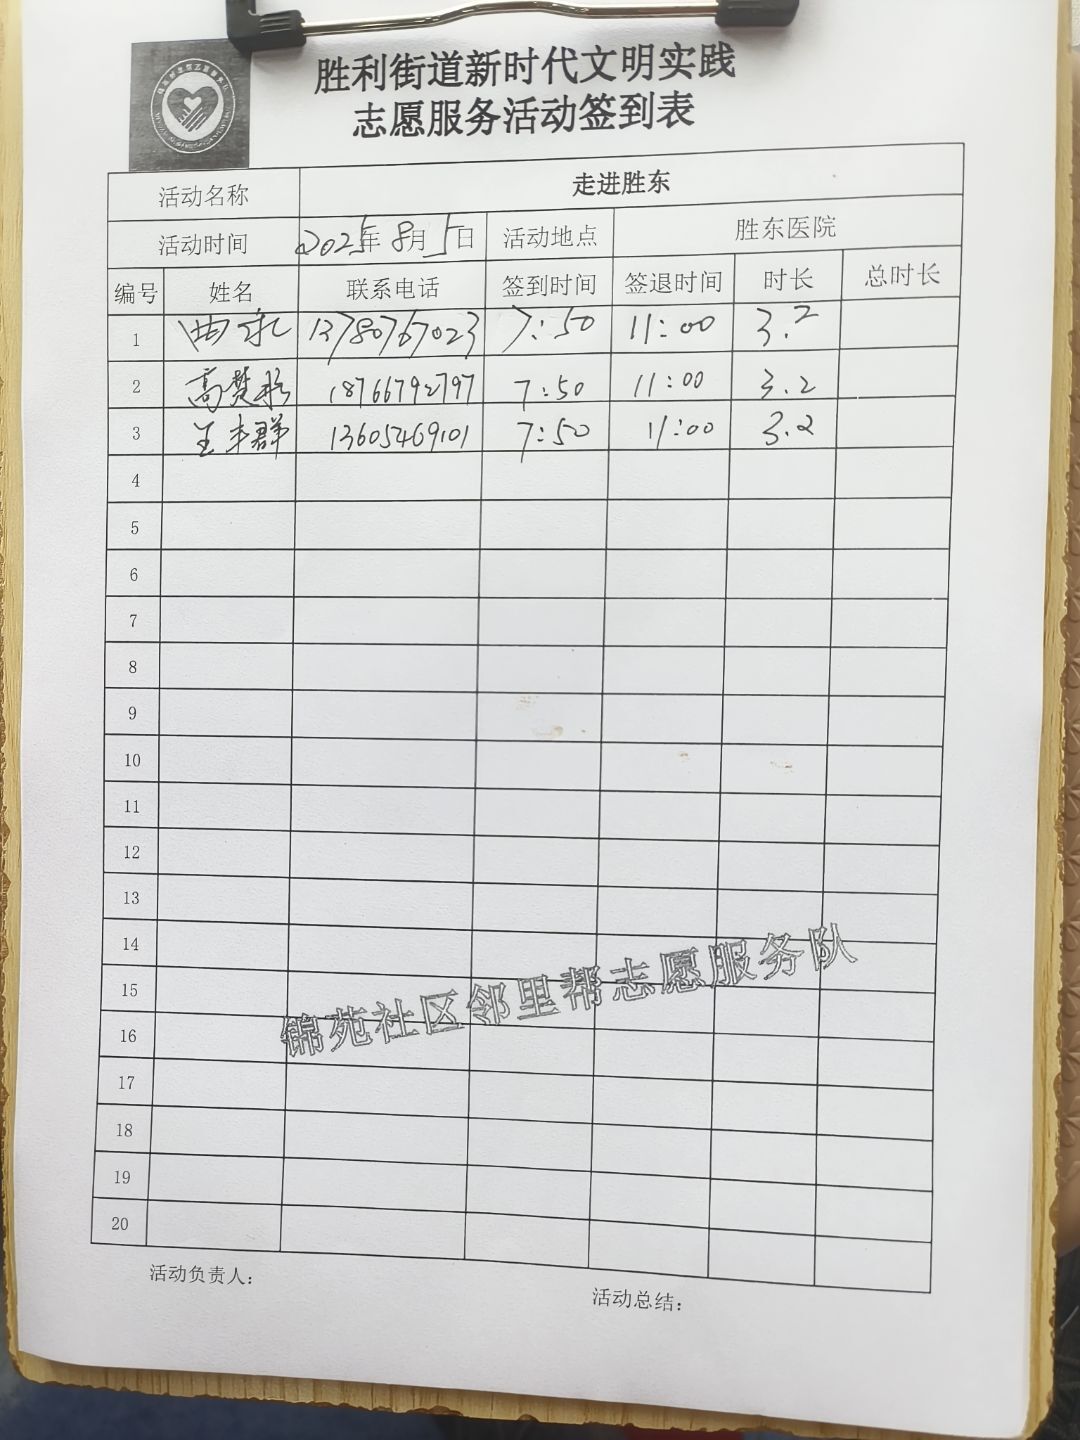 胜利街道新时代文明实践
志愿服务活动签到表
活动名称 走进胜东
活动时间 2025年8月5日 活动地点 胜东医院
编号 姓名 联系电话 签到时间 签退时间 时长 总时长
1 13780767023 7:50 11:00 3.2
2 高楚彬 18766792797 7:50 11:00 3.2
3 王丰群 13605469101 7:50 11:00 3.2
4
5
6
7
8
9
10
11
12
13
14
15
16
17
18
19
20
锦苑社区邻里帮志愿服务队
活动负责人：
活动总结：